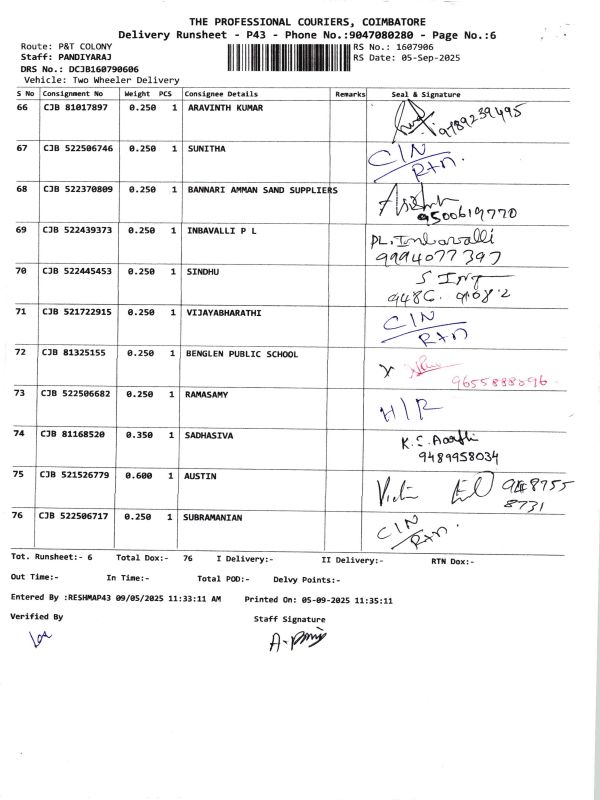 THE PROFESSIONAL COURIERS, COIMBATORE
Delivery Runsheet - P43 - Phone No.:9047080280 - Page No.:6
Route: P&T COLONY
RS No.: 1607906
Staff: PANDIYARAJ
RS Date: 05-Sep-2025
DRS No.: DCJB160790606
Vehicle: Two Wheeler Delivery
S No Consignment No Weight PCS Consignee Details Remarks Seal & Signature
66 CJB 81017897 0.250 1 ARAVINTH KUMAR 9489239495
67 CJB 522506746 0.250 1 SUNITHA C/N
RTN.
68 CJB 522370809 0.250 1 BANNARI AMMAN SAND SUPPLIERS
9500619770
69 CJB 522439373 0.250 1 INBAVALLI P L PL. Inbavalli
9994077397
70 CJB 522445453 0.250 1 SINDHU
71 CJB 521722915 0.250 1 VIJAYABHARATHI C/N
RTN
72 CJB 81325155 0.250 1 BENGLEN PUBLIC SCHOOL X
9655888896
73 CJB 522506682 0.250 1 RAMASAMY H/R
74 CJB 81168520 0.350 1 SADHASIVA K.S. Aarthi
9489958034
75 CJB 521526779 0.600 1 AUSTIN
8731
76 CJB 522506717 0.250 1 SUBRAMANIAN C/N
RTN.
Tot. Runsheet:- 6 Total Dox:- 76 I Delivery:- II Delivery:- RTN Dox:-
Out Time:- In Time:- Total POD:- Delvy Points:-
Entered By :RESHMAP43 09/05/2025 11:33:11 AM Printed On: 05-09-2025 11:35:11
Verified By
Staff Signature